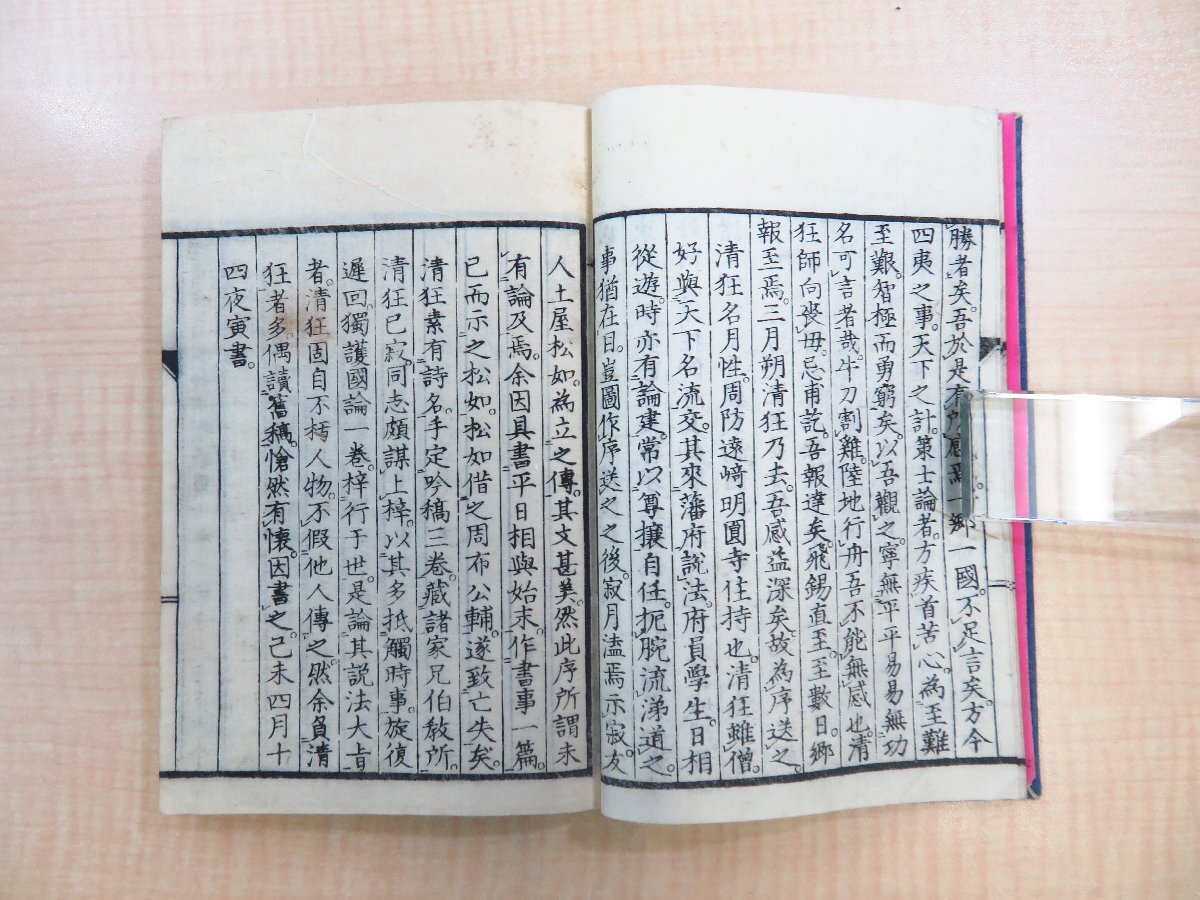 勝者矣。吾於是有所感焉。一鄉一國。不足言矣。方今
四夷之事。天下之計。策士論者。方疾首苦心。為至難
至艱。智極而勇窮矣。以吾觀之。寧無平平易易無功
名可言者哉。牛刀割雞。陸地行舟。吾不能無感也。清
狂師向喪毋。忌甫訖。吾報達矣。飛錫直至。至數日。鄉
報至焉。三月朔清狂乃去。吾感益深矣。故為序送之。
清狂名月性。周防遠﨑明圓寺住持也。清狂雖僧。
好與天下名流交。其來藩府說法。府員學生。日相
從遊。時亦有論建。常以尊攘自任。扼腕流涕道之。
事猶在目。豈圖作序送之之後。寂月溘焉示寂。友
人土屋松如。為立之傳。其文甚美。然此序所謂未
有論及焉。余因具書平日相與始末。作書事一篇。
已而示之松如。松如借之周布公輔。遂致亡失矣。
清狂素有詩名。手定吟稿三卷。藏諸家兄伯教所。
清狂已寂。同志頗謀上梓。以其多抵觸時事。旋復
遲回。獨護國論一卷。梓行于世。是論其説法大旨
者。清狂固自不朽人物。不假他人傳之。然余負清
狂者多。偶讀舊稿。愴然有懷。因書之。己未四月十
四夜寅書。